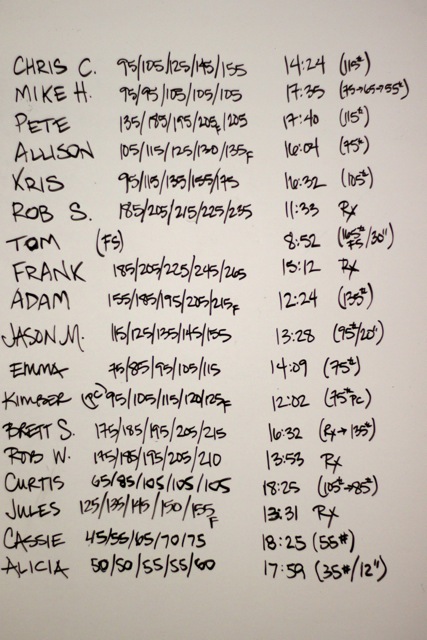 CHRIS C. 95/105/125/145/155 14:24 (115#)
MIKE H. 95/95/105/105/105 17:35 (75→65→55#)
PETE 135/185/195/205F/205 17:40 (115#)
ALLISON 105/115/125/130/135F 16:04 (75#)
KRIS 95/115/135/155/175 16:32 (105#)
ROB S. 185/205/215/225/235 11:33 Rx
TOM (FS) 8:52 (165# FS/30")
FRANK 185/205/225/245/265 15:12 Rx
ADAM 155/185/195/205/215F 12:24 (135#)
JASON M. 115/125/135/145/155 13:28 (95#/20")
EMMA 75/85/95/105/115 14:09 (75#)
KIMBER (PC) 95/105/115/120/125F 12:02 (75# PC)
BRETT S. 175/185/195/205/215 16:32 (Rx→135#)
ROB W. 135/185/195/205/210 13:53 Rx
CURTIS 65/85/105/105/105 18:25 (105#→85#)
JULES 125/135/145/150/155F 13:31 Rx
CASSIE 45/55/65/70/75 18:25 (55#)
ALICIA 50/50/55/55/60 17:59 (35#/12")